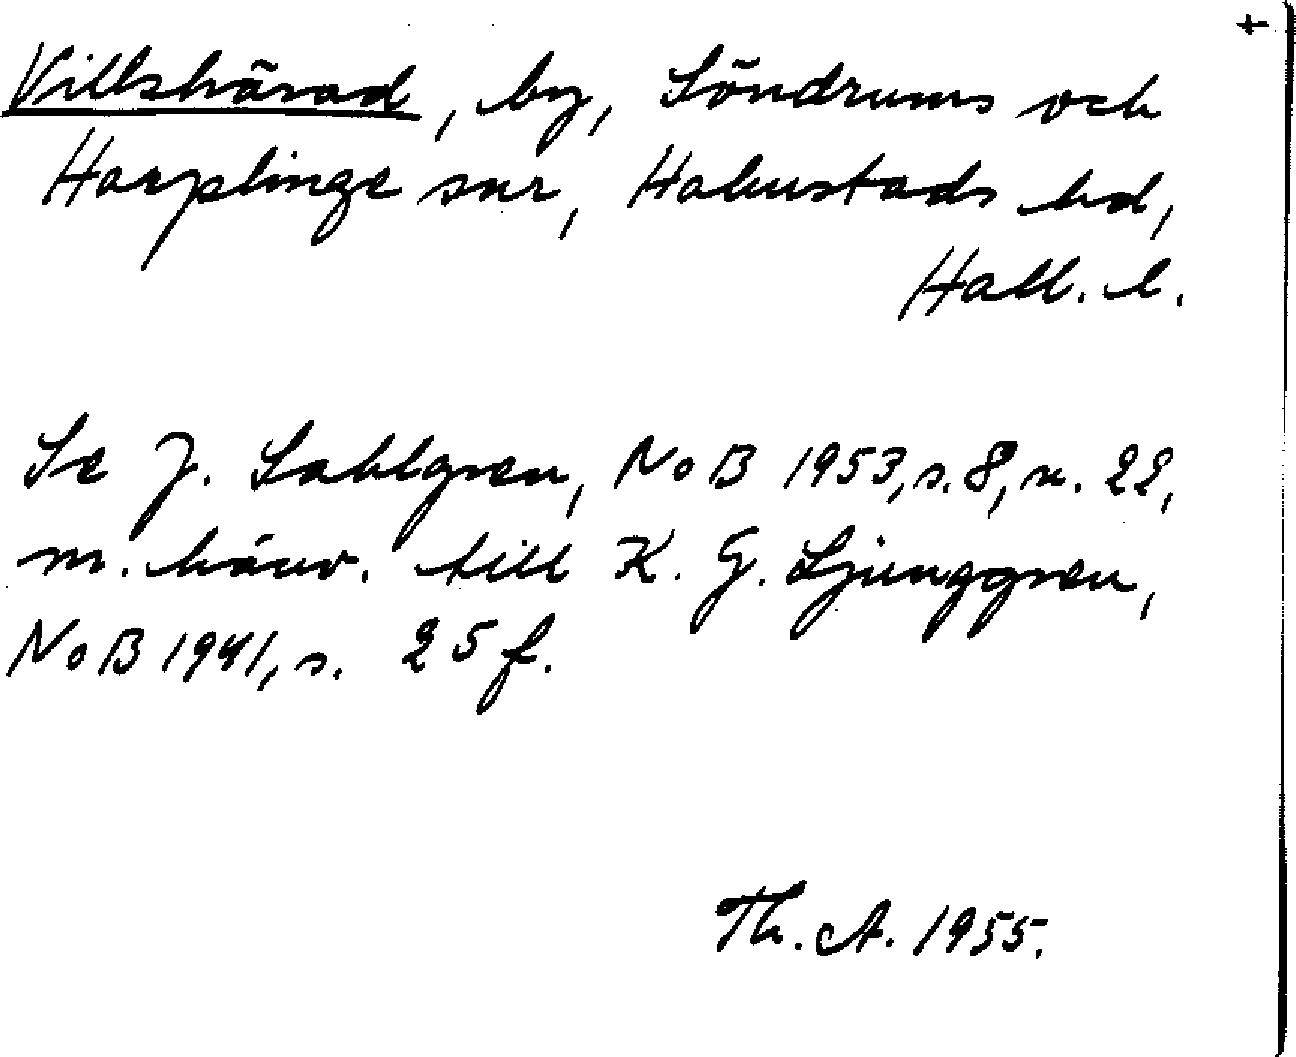 +
Villshärad, by, Söndrums och
Harplinge snr, Halmstads hd,
Hall. l.
Se J. Sahlgren, NoB 1953, s. 8, n. 22,
m. hänv. till K. G. Ljunggren,
NoB 1941, s. 25 f.
Th. A. 1955.